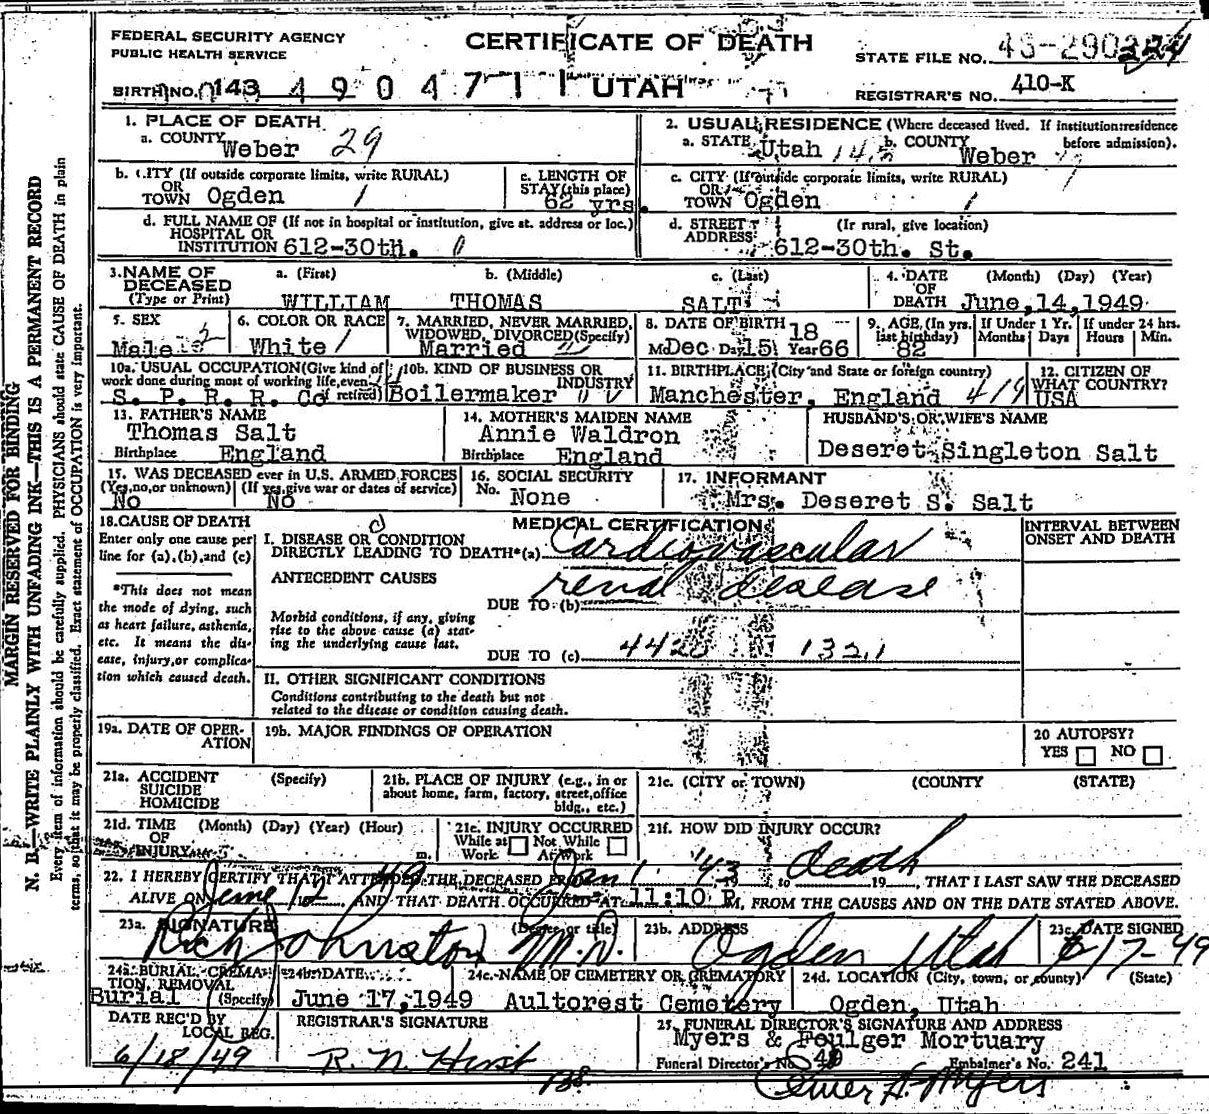 FEDERAL SECURITY AGENCY
PUBLIC HEALTH SERVICE
CERTIFICATE OF DEATH
STATE FILE NO.
BIRTH NO. 143 490471 UTAH
REGISTRAR'S NO. 410-K
MARGIN RESERVED FOR BINDING
N. B.—WRITE PLAINLY WITH UNFADING INK—THIS IS A PERMANENT RECORD
Every item of information should be carefully supplied. PHYSICIANS should state CAUSE OF DEATH in plain
terms, so that it may be properly classified. Exact statement of OCCUPATION is very important.
1. PLACE OF DEATH
a. COUNTY Weber 29
2. USUAL RESIDENCE (Where deceased lived. If institution: residence
before admission).
a. STATE Utah b. COUNTY Weber
b. CITY (If outside corporate limits, write RURAL)
OR
TOWN Ogden 1
c. LENGTH OF
STAY (this place)
62 yrs.
c. CITY (If outside corporate limits, write RURAL)
OR
TOWN Ogden 1
d. FULL NAME OF (If not in hospital or institution, give st. address or loc.)
HOSPITAL OR
INSTITUTION 612-30th. 0
d. STREET (If rural, give location)
ADDRESS 612-30th. St.
3. NAME OF
DECEASED
(Type or Print)
a. (First) b. (Middle) c. (Last)
WILLIAM THOMAS SALT
4. DATE (Month) (Day) (Year)
OF
DEATH June,14,1949
5. SEX
Male
6. COLOR OR RACE
White 1
7. MARRIED, NEVER MARRIED,
WIDOWED, DIVORCED (Specify)
Married
8. DATE OF BIRTH 18
Mo Dec Day 15 Year 66
9. AGE (In yrs.
last birthday)
82
If Under 1 Yr.
Months Days
If under 24 hrs.
Hours Min.
10a. USUAL OCCUPATION (Give kind of
work done during most of working life, even
if retired)
S. P. R. R. Co
10b. KIND OF BUSINESS OR
INDUSTRY
Boilermaker
11. BIRTHPLACE (City and State or foreign country)
Manchester, England 419
12. CITIZEN OF
WHAT COUNTRY?
USA
13. FATHER'S NAME
Thomas Salt
Birthplace England
14. MOTHER'S MAIDEN NAME
Annie Waldron
Birthplace England
HUSBAND'S OR WIFE'S NAME
Deseret Singleton Salt
15. WAS DECEASED ever in U.S. ARMED FORCES
(Yes, no, or unknown) (If yes, give war or dates of service)
No No
16. SOCIAL SECURITY
No. None
17. INFORMANT
Mrs. Deseret S. Salt
18. CAUSE OF DEATH
Enter only one cause per
line for (a), (b), and (c)
*This does not mean
the mode of dying, such
as heart failure, asthenia,
etc. It means the dis-
ease, injury, or complica-
tion which caused death.
MEDICAL CERTIFICATION
INTERVAL BETWEEN
ONSET AND DEATH
I. DISEASE OR CONDITION
DIRECTLY LEADING TO DEATH*(a) Cardiovascular
ANTECEDENT CAUSES
renal desease
DUE TO (b)
Morbid conditions, if any, giving
rise to the above cause (a) stat-
ing the underlying cause last.
DUE TO (c) 4420 132.1
II. OTHER SIGNIFICANT CONDITIONS
Conditions contributing to the death but not
related to the disease or condition causing death.
19a. DATE OF OPER-
ATION
19b. MAJOR FINDINGS OF OPERATION
20 AUTOPSY?
YES NO
21a. ACCIDENT (Specify)
SUICIDE
HOMICIDE
21b. PLACE OF INJURY (e.g., in or
about home, farm, factory, street, office
bldg., etc.)
21c. (CITY or TOWN) (COUNTY) (STATE)
21d. TIME (Month) (Day) (Year) (Hour)
OF
INJURY m.
21e. INJURY OCCURRED
While at Not While
Work At Work
21f. HOW DID INJURY OCCUR?
22. I HEREBY CERTIFY THAT I ATTENDED THE DECEASED FROM Jan 1 '43, 19 to death 19 , THAT I LAST SAW THE DECEASED
ALIVE ON June 12 49 AND THAT DEATH OCCURRED AT 11:10 P.M, FROM THE CAUSES AND ON THE DATE STATED ABOVE.
23a. SIGNATURE (Degree or title)
Rich Johnston M.D.
23b. ADDRESS
Ogden Utah
23c. DATE SIGNED
6/17-49
24a. BURIAL, CREMA-
TION, REMOVAL
Burial (Specify)
24b. DATE
June 17,1949
24c. NAME OF CEMETERY OR CREMATORY
Aultorest Cemetery
24d. LOCATION (City, town, or county) (State)
Ogden, Utah
DATE REC'D BY
LOCAL REG.
6/18/49
REGISTRAR'S SIGNATURE
R. N. Hirst
25. FUNERAL DIRECTOR'S SIGNATURE AND ADDRESS
Myers & Foulger Mortuary
Funeral Director's No. Embalmer's No. 241
Myers